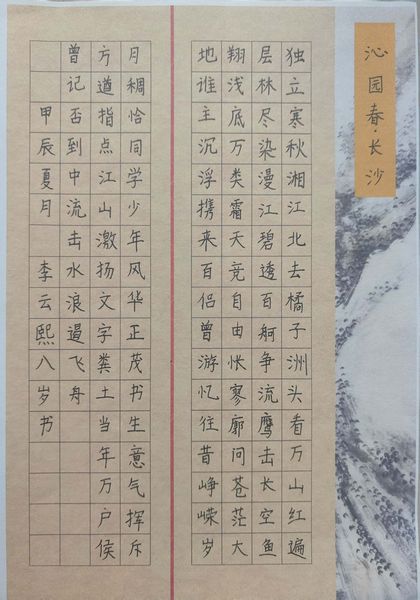 沁园春·长沙
独立寒秋湘江北去橘子洲头看万山红遍
层林尽染漫江碧透百舸争流鹰击长空鱼
翔浅底万类霜天竞自由怅寥廓问苍茫大
地谁主沉浮携来百侣曾游忆往昔峥嵘岁
月稠恰同学少年风华正茂书生意气挥斥
方遒指点江山激扬文字粪土当年万户侯
曾记否到中流击水浪遏飞舟
甲辰夏月 李云熙八岁书